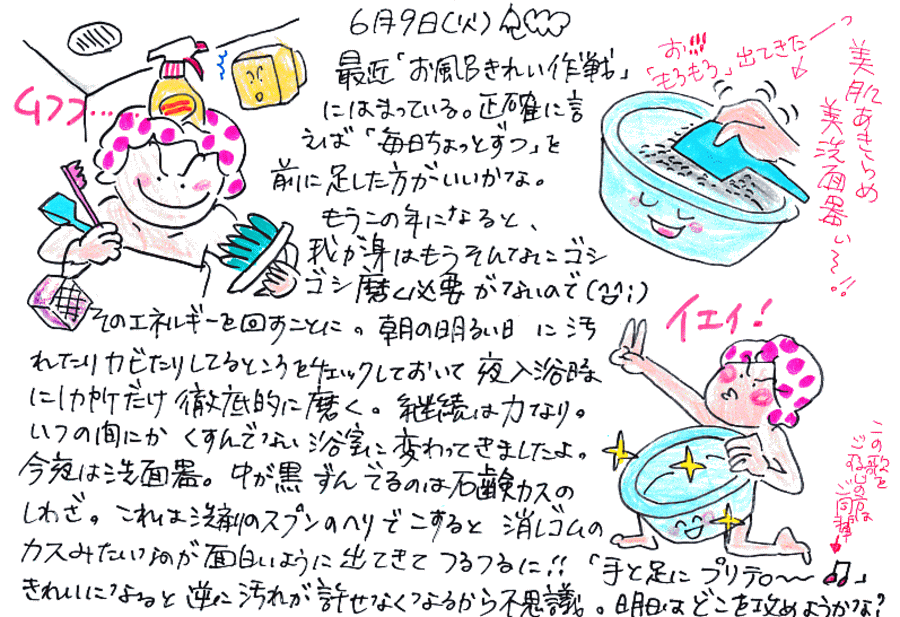 6月9日(火)
最近「お風呂きれい作戦」
にはまっている。正確に言
えば「毎日ちょっとずつ」を
前に足した方がいいかな。
もうこの年になると、
我が身はもうそんなにゴシ
ゴシ磨く必要がないので
そのエネルギーを回すことに。朝の明るい日に汚
れてたりカビたりしてるところをチェックしておいて夜入浴時
に1カ所だけ徹底的に磨く。継続は力なり。
いつの間にかくすんでない浴室に変わってきましたよ。
今夜は洗面器。中が黒ずんでるのは石鹸カスの
しわざ。これは洗剤のスプンのヘリでこすると消しゴムの
カスみたいなのが面白いように出てきてつるつるに!!「手と足にプリテ〜〜♫」
きれいになると逆に汚れが許せなくなるから不思議。明日はどこを攻めようかな?
ムフフ……
お!!!
「もろもろ」出てきたーっ
美肌あきらめ
美洗面器い〜!!
イエィ!
この歌を
ご存じの方は